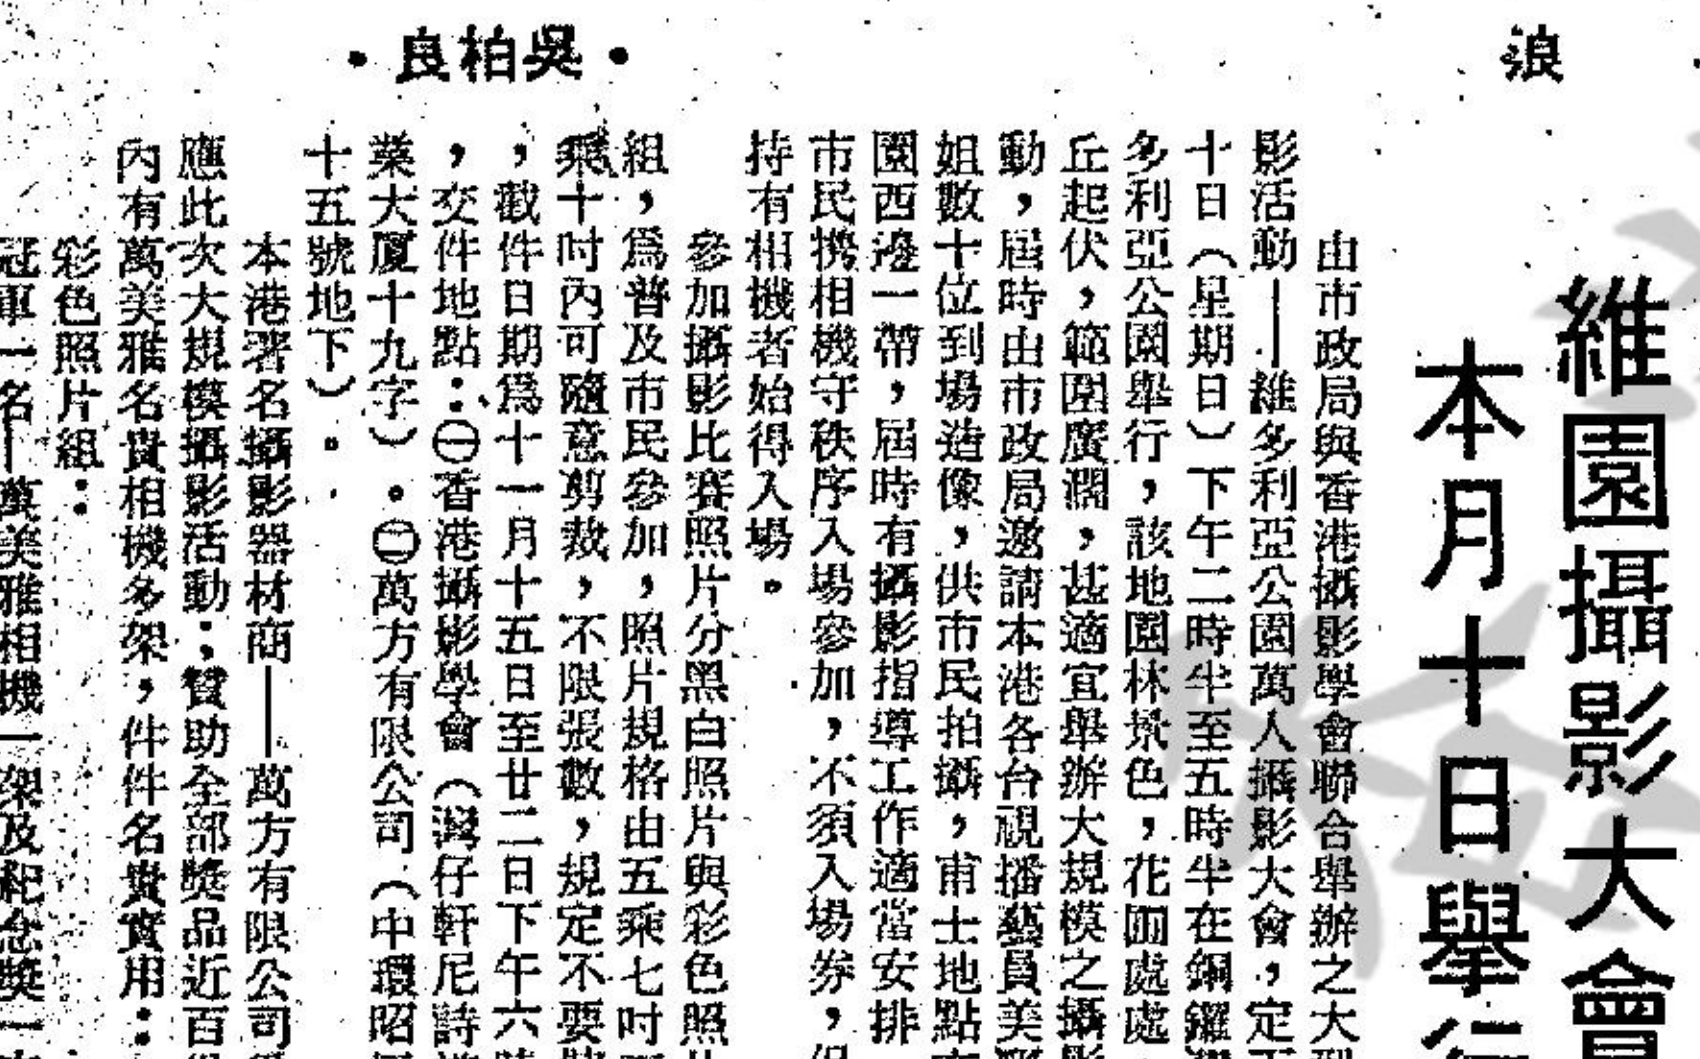 浪
•吳柏良•
維園攝影大會
本月十日舉行
由市政局與香港攝影學會聯合舉辦之大型
影活動——維多利亞公園萬人攝影大會，定
十日（星期日）下午二時半至五時半在銅鑼
多利亞公園舉行，該地園林景色，花圃處處
丘起伏，範圍廣濶，甚適宜舉辦大規模之攝影
動，屆時由市政局邀請本港各台視播藝員美
姐數十位到場造像，供市民拍攝，甫士地點
園西邊一帶，屆時有攝影指導工作適當安排
市民携相機守秩序入場參加，不須入場券，但
持有相機者始得入場。
參加攝影比賽照片分黑白照片與彩色照片
組，爲普及市民參加，照片規格由五乘七吋
乘十吋內可隨意剪裁，不限張數，規定不要
，截件日期爲十一月十五日至廿二日下午六時
，交件地點：㊀香港攝影學會（灣仔軒尼詩
業大厦十九字）。㊁萬方有限公司（中環昭
十五號地下）。
本港著名攝影器材商——萬方有限公司
應此次大規模攝影活動；贊助全部獎品近百
內有萬美雅名貴相機多架，件件名貴實用：
彩色照片組：
冠軍一名—萬美雅相機一架及紀念獎一